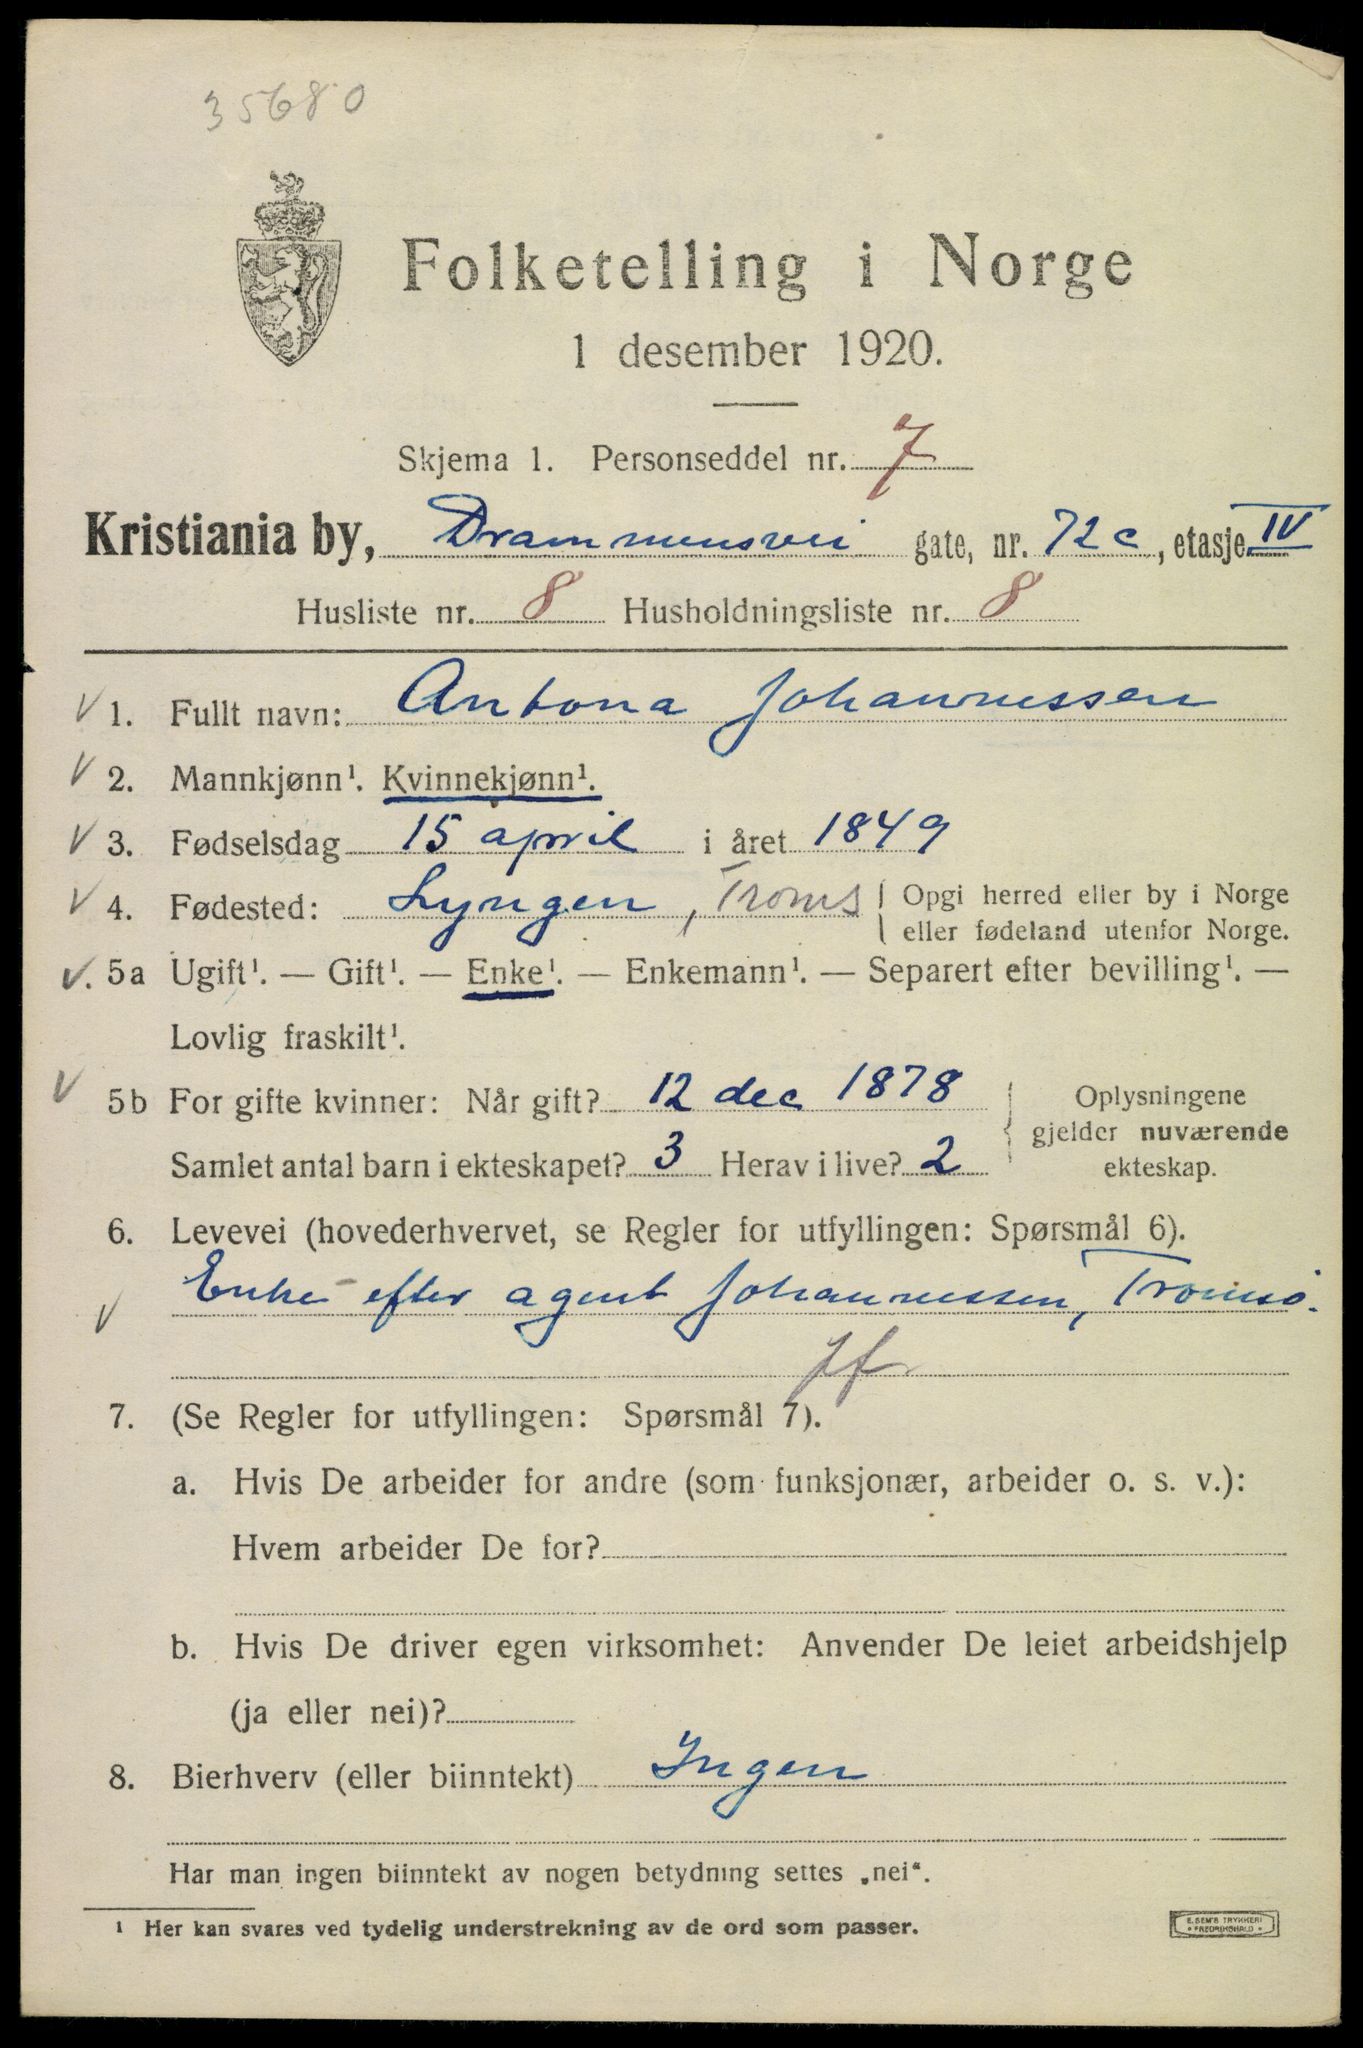 35680
Folketelling i Norge
1 desember 1920.
Skjema 1. Personseddel nr. 7
Kristiania by, Drammensvei gate, nr. 72c, etasje IV
Husliste nr. 8 Husholdningsliste nr. 8
V 1. Fullt navn: Antona Johannessen
V 2. Mannkjønn¹. Kvinnekjønn¹.
V 3. Fødselsdag 15 april i året 1849
V 4. Fødested: Lyngen, Troms { Opgi herred eller by i Norge
eller fødeland utenfor Norge.
V. 5a Ugift¹. — Gift¹. — Enke¹. — Enkemann¹. — Separert efter bevilling¹. —
Lovlig fraskilt¹.
V 5b For gifte kvinner: Når gift? 12 dec 1878
Samlet antal barn i ekteskapet? 3 Herav i live? 2
Oplysningene
gjelder nuværende
ekteskap.
6. Levevei (hovederhvervet, se Regler for utfyllingen: Spørsmål 6).
V Enke efter agent Johannessen, Tromsø.
7. (Se Regler for utfyllingen: Spørsmål 7).
a. Hvis De arbeider for andre (som funksjonær, arbeider o. s. v.):
Hvem arbeider De for?
b. Hvis De driver egen virksomhet: Anvender De leiet arbeidshjelp
(ja eller nei)?
8. Bierhverv (eller biinntekt) Ingen
Har man ingen biinntekt av nogen betydning settes „nei“.
¹ Her kan svares ved tydelig understrekning av de ord som passer.
E. SEM'S TRYKKERI
• FREDRIKSHALD •